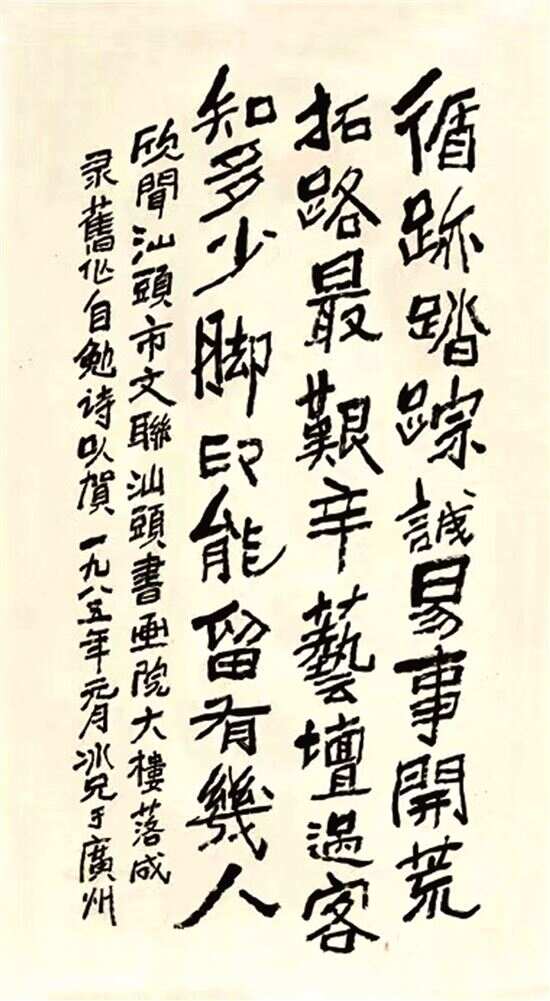 循跡踏踪誠易事開荒
拓路最艱辛藝壇過客
知多少脚印能留有幾人
欣聞汕頭市文聯汕頭書画院大樓落成
录舊作自勉诗以賀 一九八五年元月冰兄于廣州